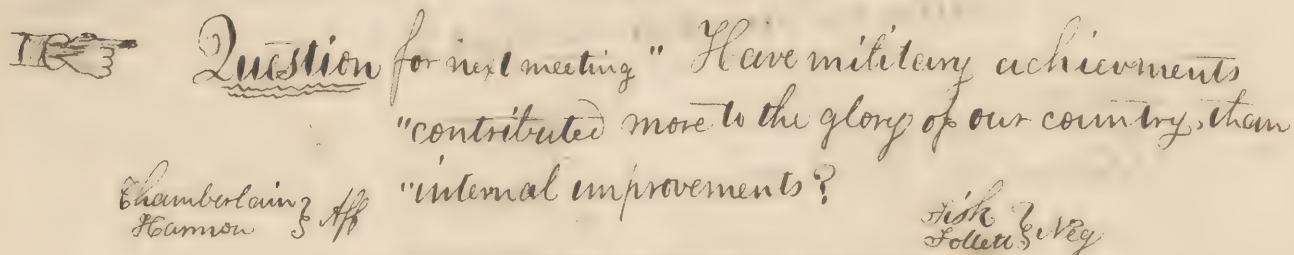 Question for next meeting " Have military achievments
"contributed more to the glory of our country, than
"internal improvements?
Chamberlain } Aff
Harmon
Fish } Neg
Follett